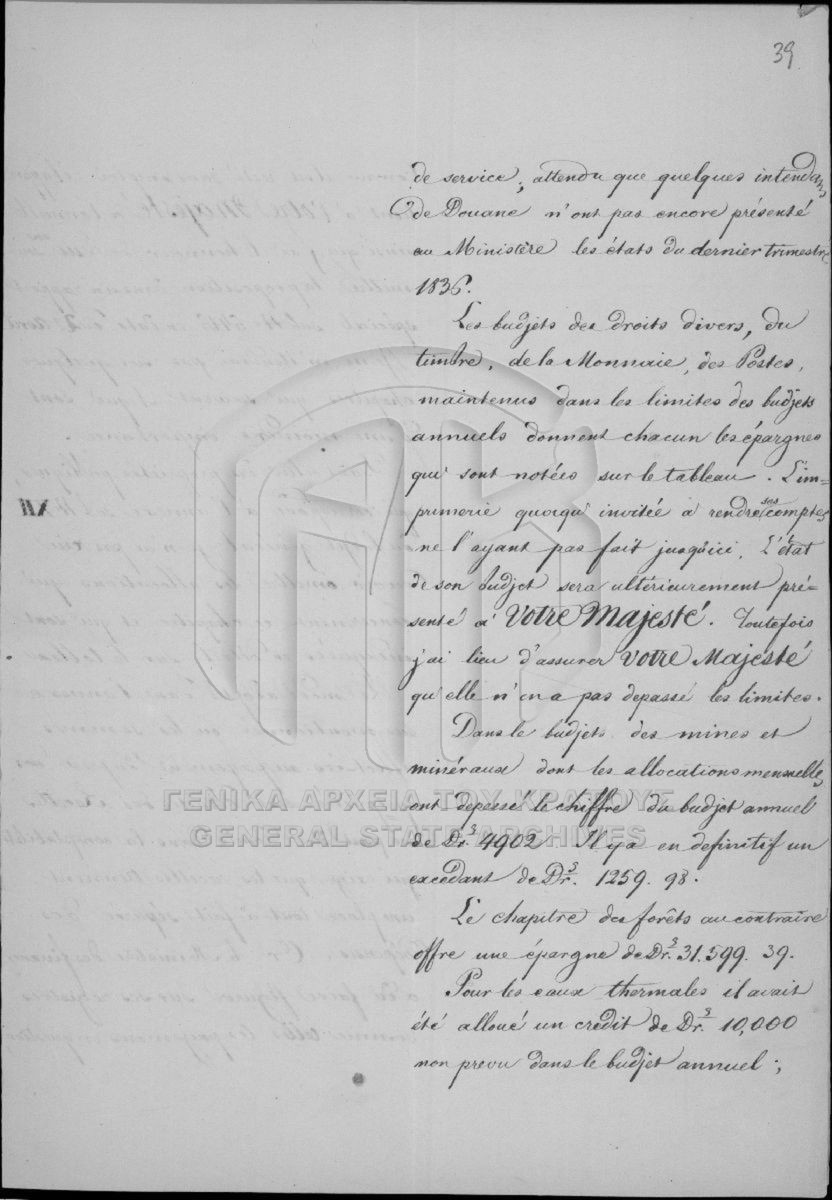 39
de service, attendu que quelques intendans
de Douane n'ont pas encore présenté
au Ministère les états du dernier trimestre
1836.
Les budjets des droits divers, du
timbre, de la Monnaie, des Postes,
maintenus dans les limites des budjets
annuels donnent chacun les épargnes
qui sont notées sur le tableau. L'im=
primerie quoiqu' invitée à rendre ses comptes
ne l'ayant pas fait jusqu'ici, L'état
de son budjet sera ultérieurement pré=
senté à Votre Majesté. Toutefois
j'ai lieu d'assurer Votre Majesté
qu'elle n'en a pas depassé les limites.
Dans le budjets des mines et
minéraux dont les allocations mensuelles
ont depessé le chiffre du budjet annuel
de Dr.s 4902 Il y a en definitif un
excédant de Dr.s 1259. 98.
Le chapitre des forêts au contraire
offre une épargne de Dr.s 31.599. 39.
Pour les eaux thermales il avait
été alloué un credit de Dr.s 10,000
non prevu dans le budjet annuel;
VII
ΓΕΝΙΚΑ ΑΡΧΕΙΑ ΤΟΥ ΚΡΑΤΟΥΣ
GENERAL STATE ARCHIVES